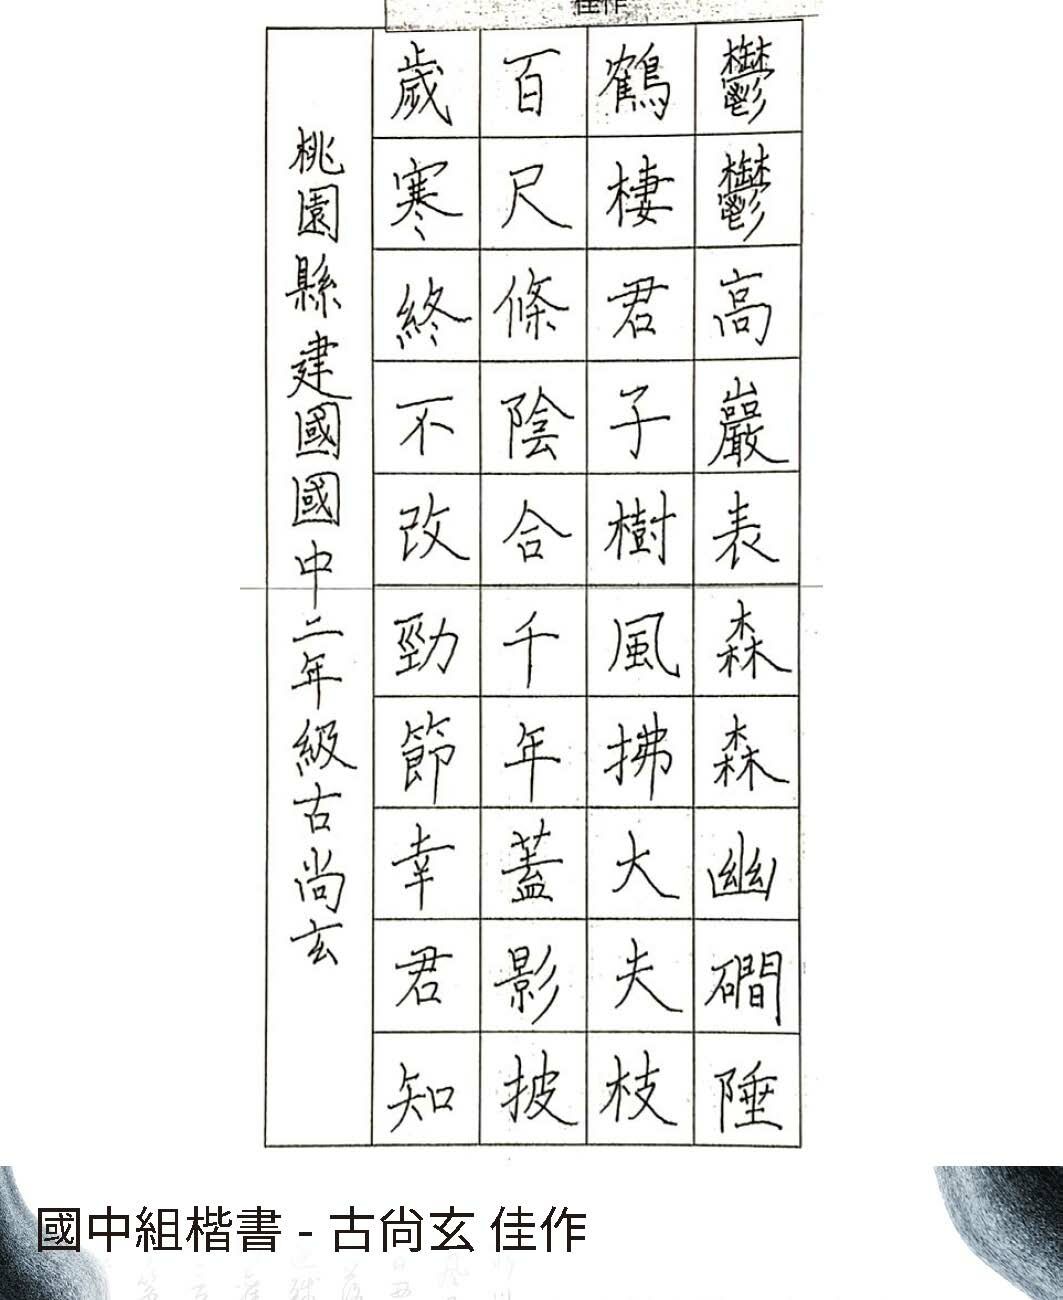 佳作
鬱鬱高巖表森森幽磵陲
鶴棲君子樹風拂大夫枝
百尺條陰合千年蓋影披
歲寒終不改勁節幸君知
桃園縣建國國中二年級古尚玄
國中組楷書 - 古尚玄 佳作